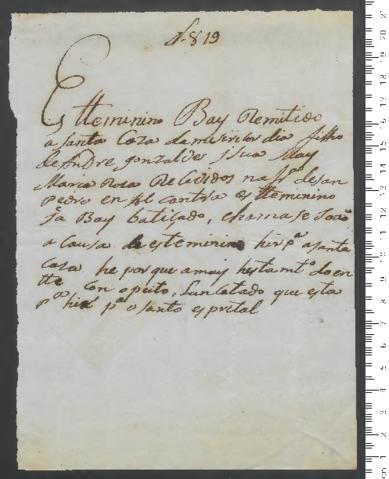 N. 819
Este menino Bay Remitido
a Santa Caza da mizericordia filho
de Andre gonzalves i sua May
Maria Roza Recedidos na fg.ª de San
Pedro en Al cantra este menino
Ja Bay Batizado, chamase Joaõ
a Cauza de este menino hir pª a Santa
caza he porque a may hesta mtº doen
tte con o peito, Sun
que esta
pª hir pª o Santo esprital